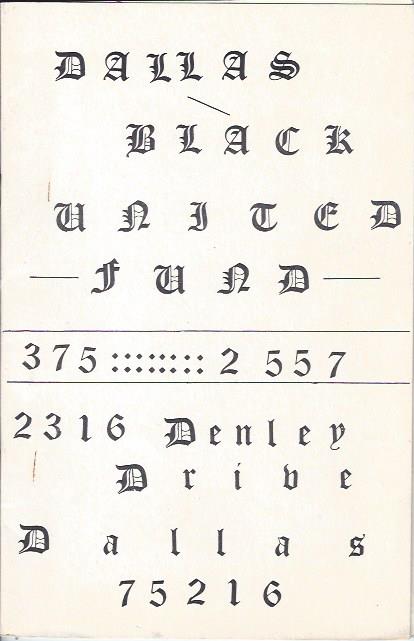 DALLAS
BLACK
UNITED
FUND
375 :::::::: 2 557
2316 Denley
Drive
Dallas
75216